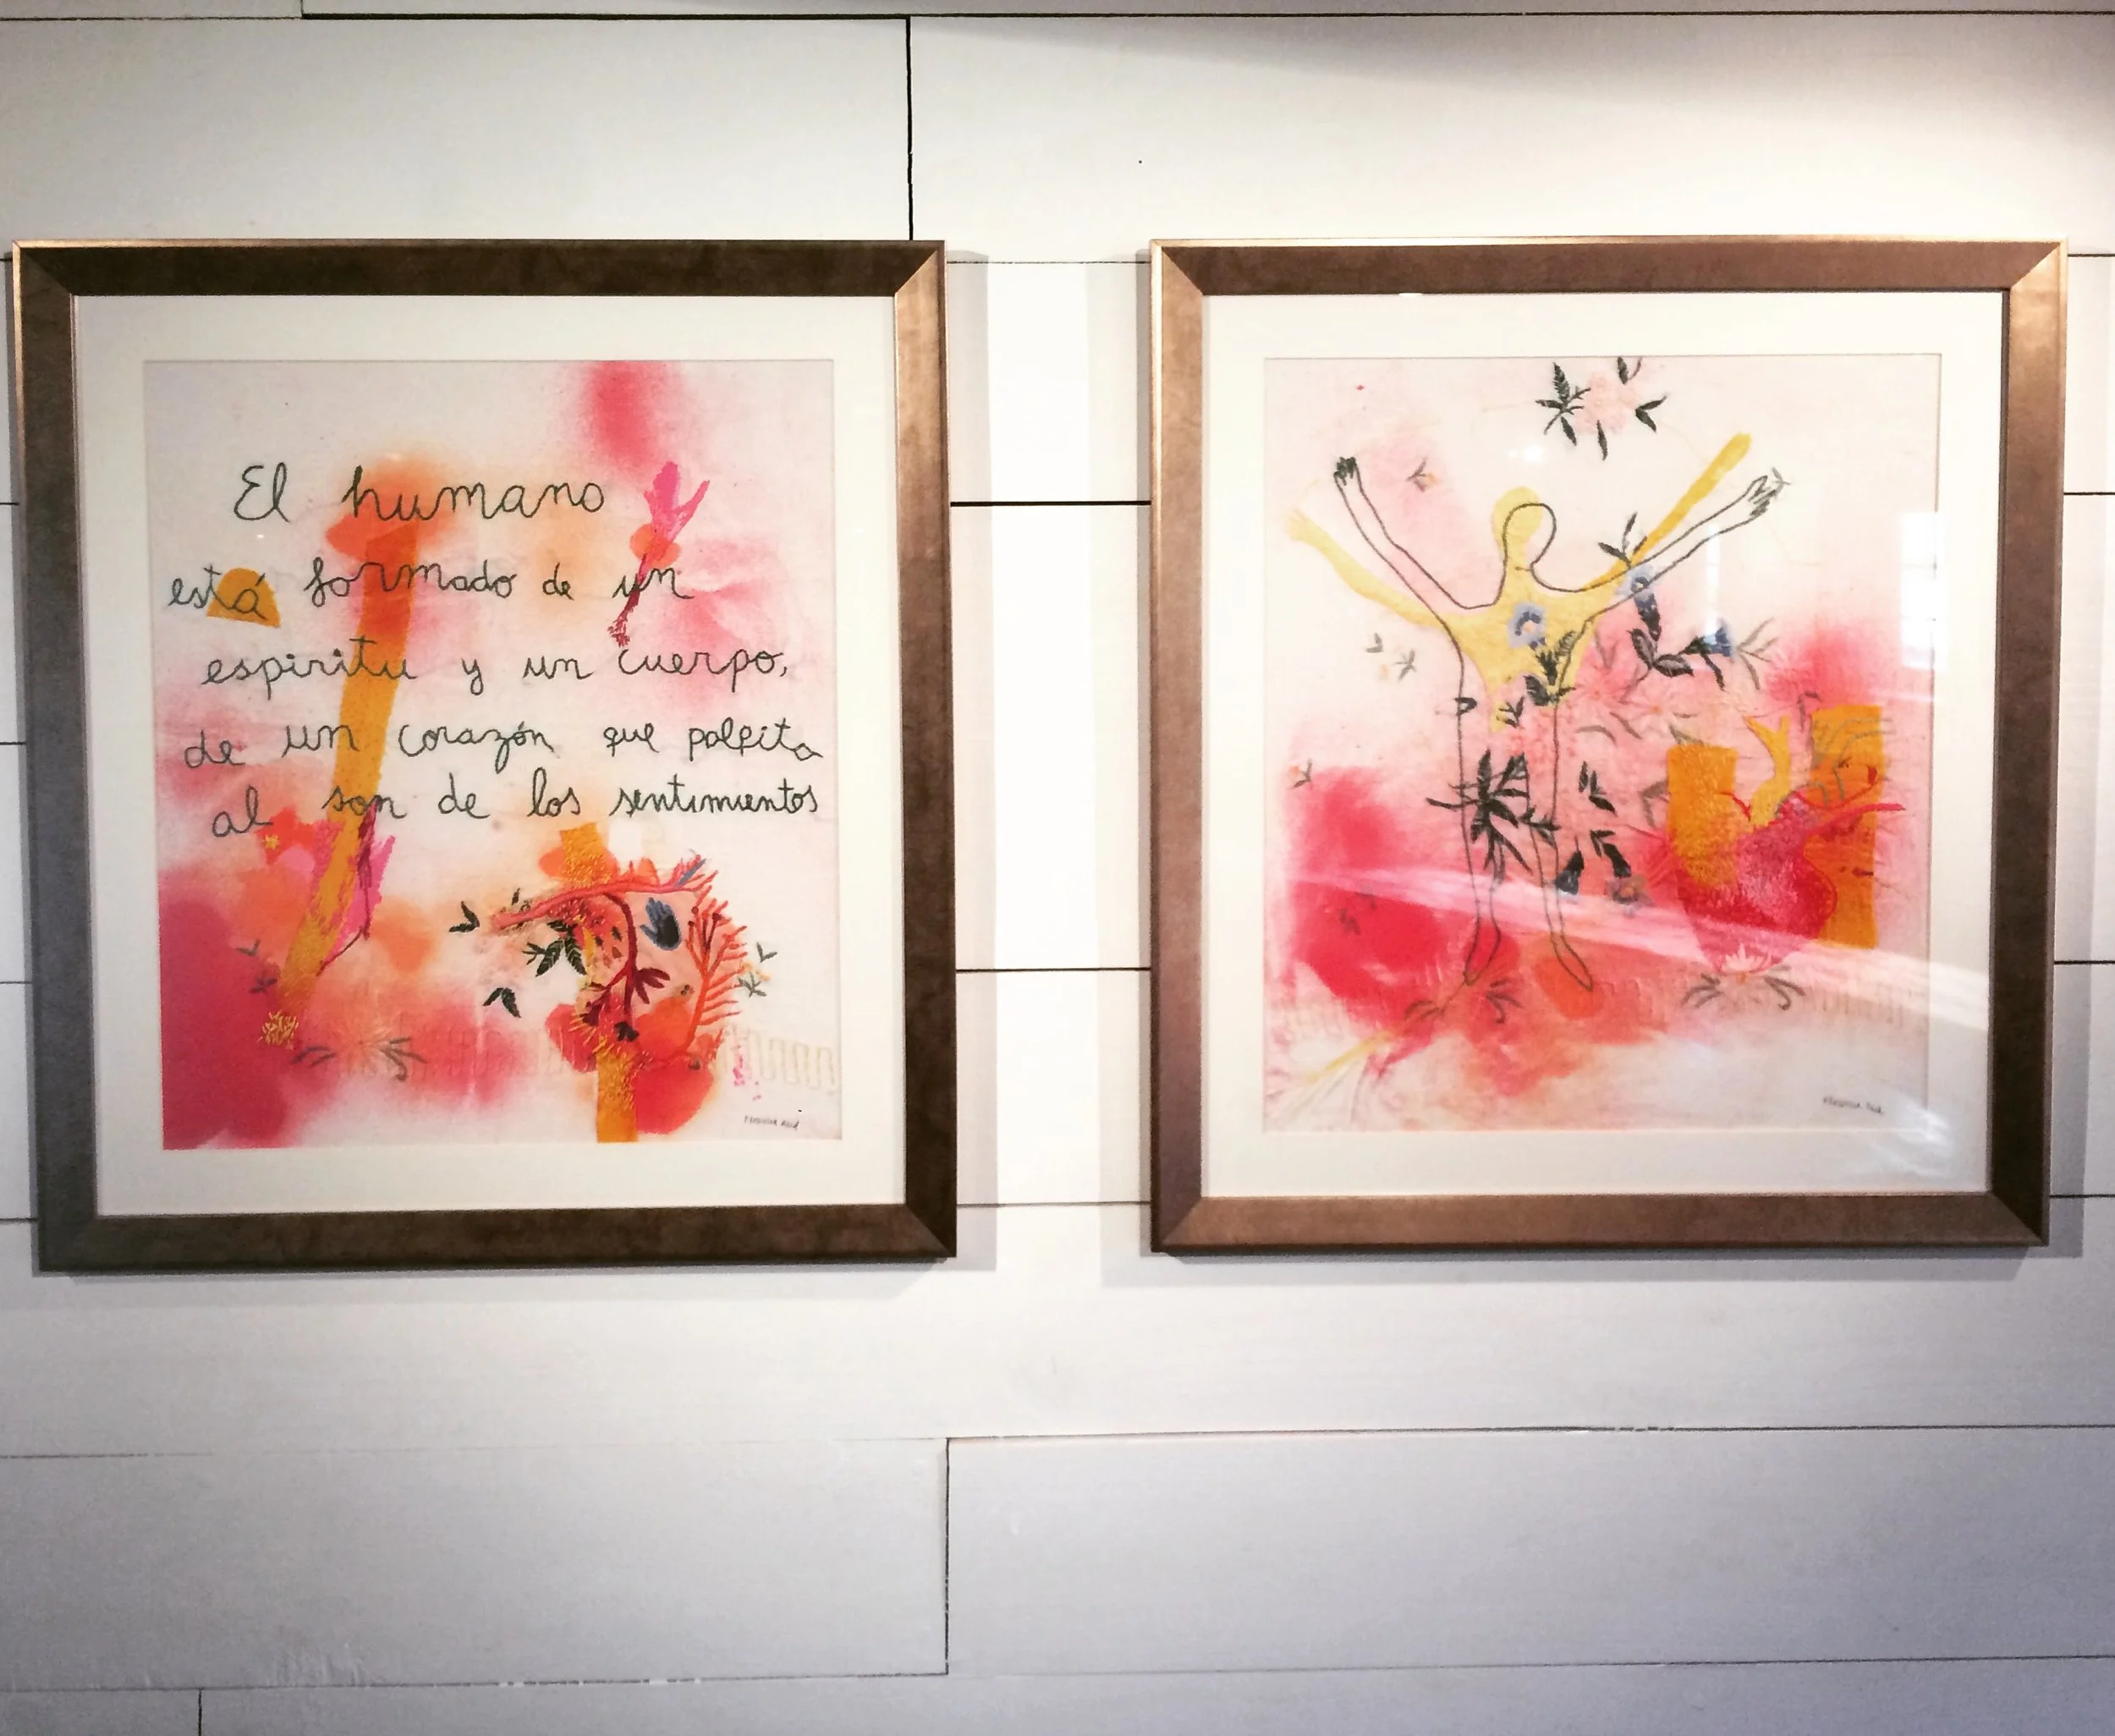 El humano
está formado de un
espiritu y un cuerpo,
de un corazón que palpita
al son de los sentimientos